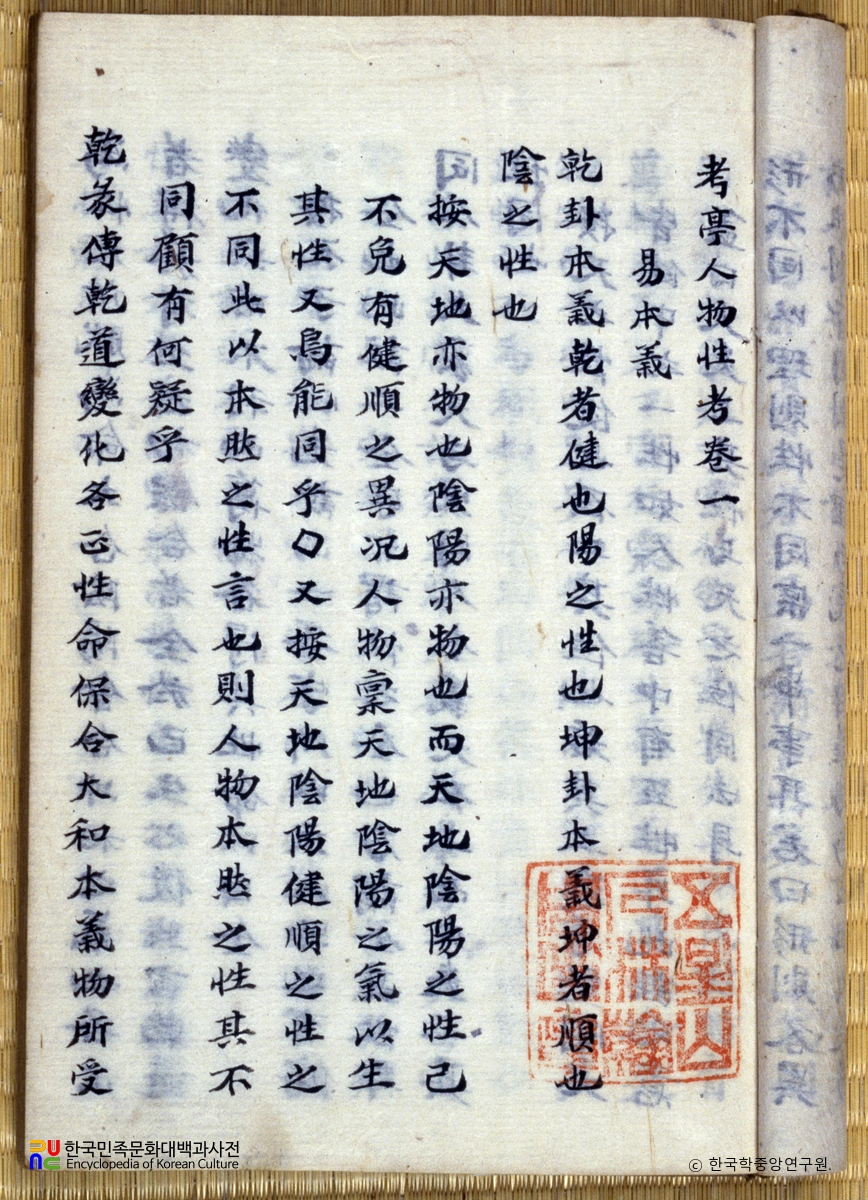 考亭人物性考卷一
易本義
乾卦本義乾者健也陽之性也坤卦本義坤者順也
陰之性也
按天地亦物也陰陽亦物也而天地陰陽之性已
不免有健順之異况人物稟天地陰陽之氣以生
其性又烏能同乎〇又按天地陰陽健順之性之
不同此以本然之性言也則人物本然之性其不
同顧有何疑乎
乾彖傳乾道變化各正性命保合大和本義物所受
한국민족문화대백과사전
Encyclopedia of Korean Culture
© 한국학중앙연구원.